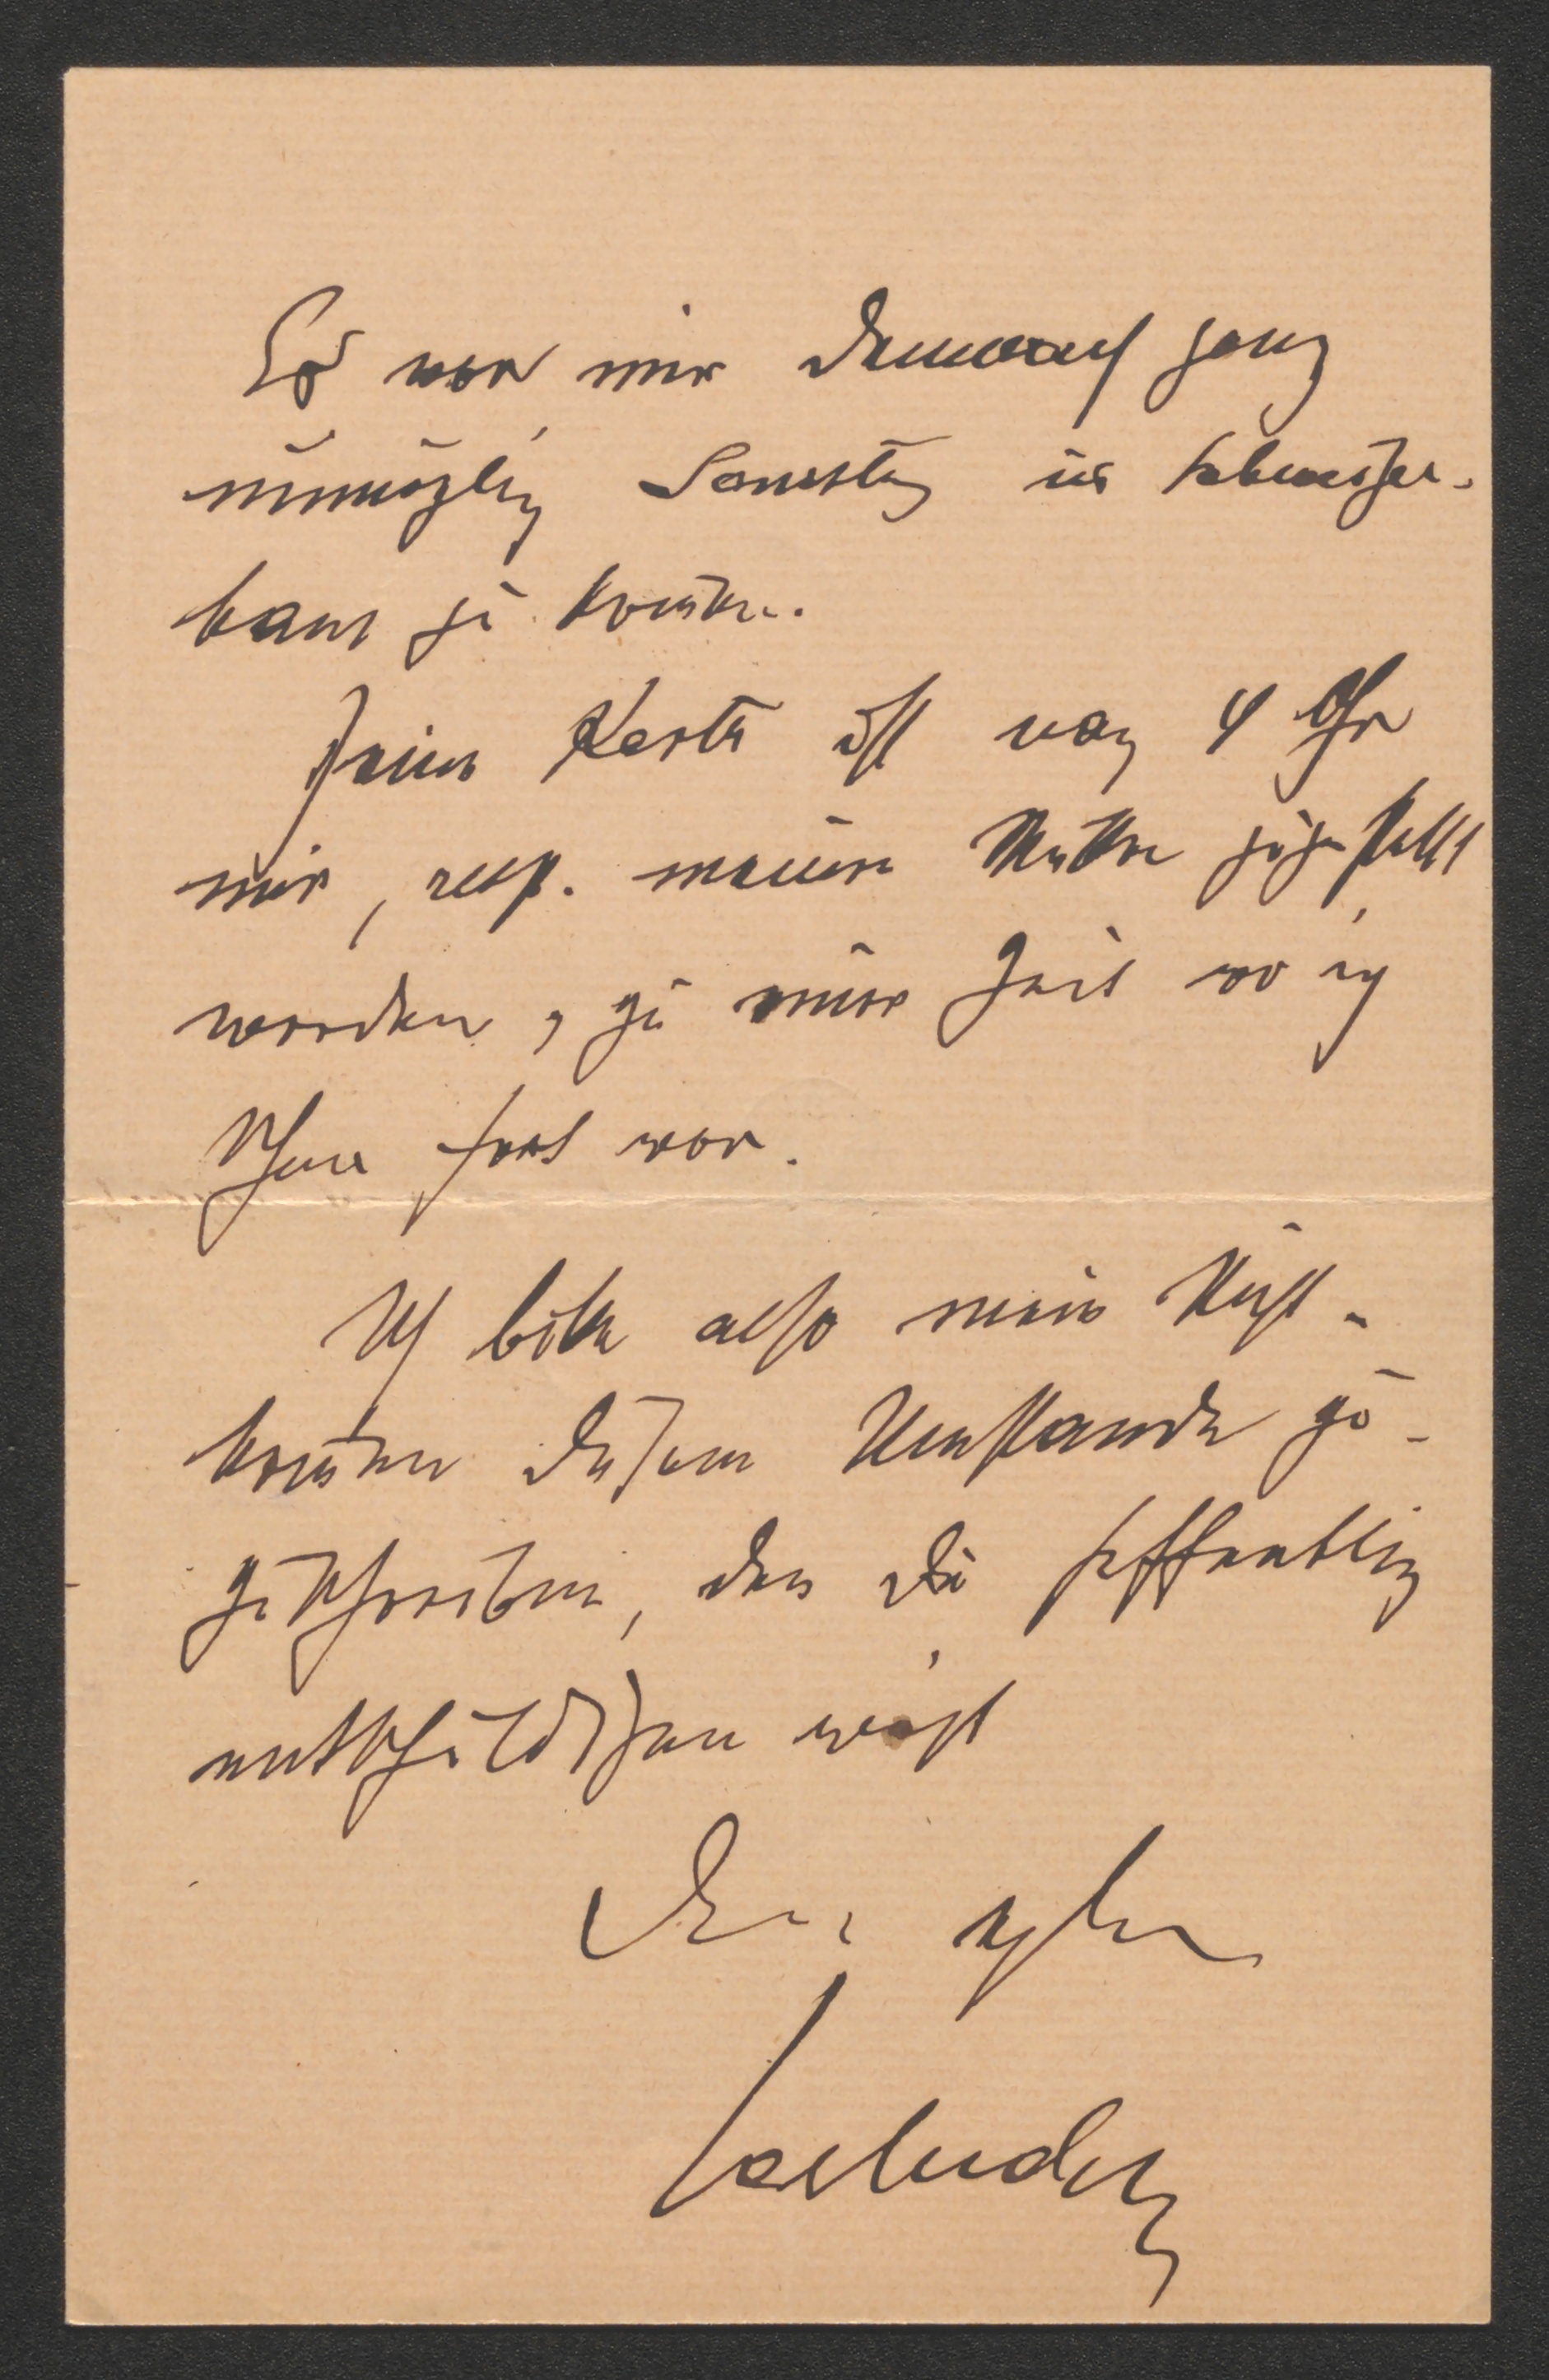 Es war mir demnach ganz
unmöglich Samstag in
kam zu kommen.
Deine Karte ist nach 4 Uhr
mir, resp. meiner Mutter zugestellt
worden, zu einer Zeit wo ich
schon fort war.
Ich bitte also mein Nicht-
kommen diesem Umstande zu-
zuschreiben, den Du hoffentlich
entschuldigen wirst
Dein